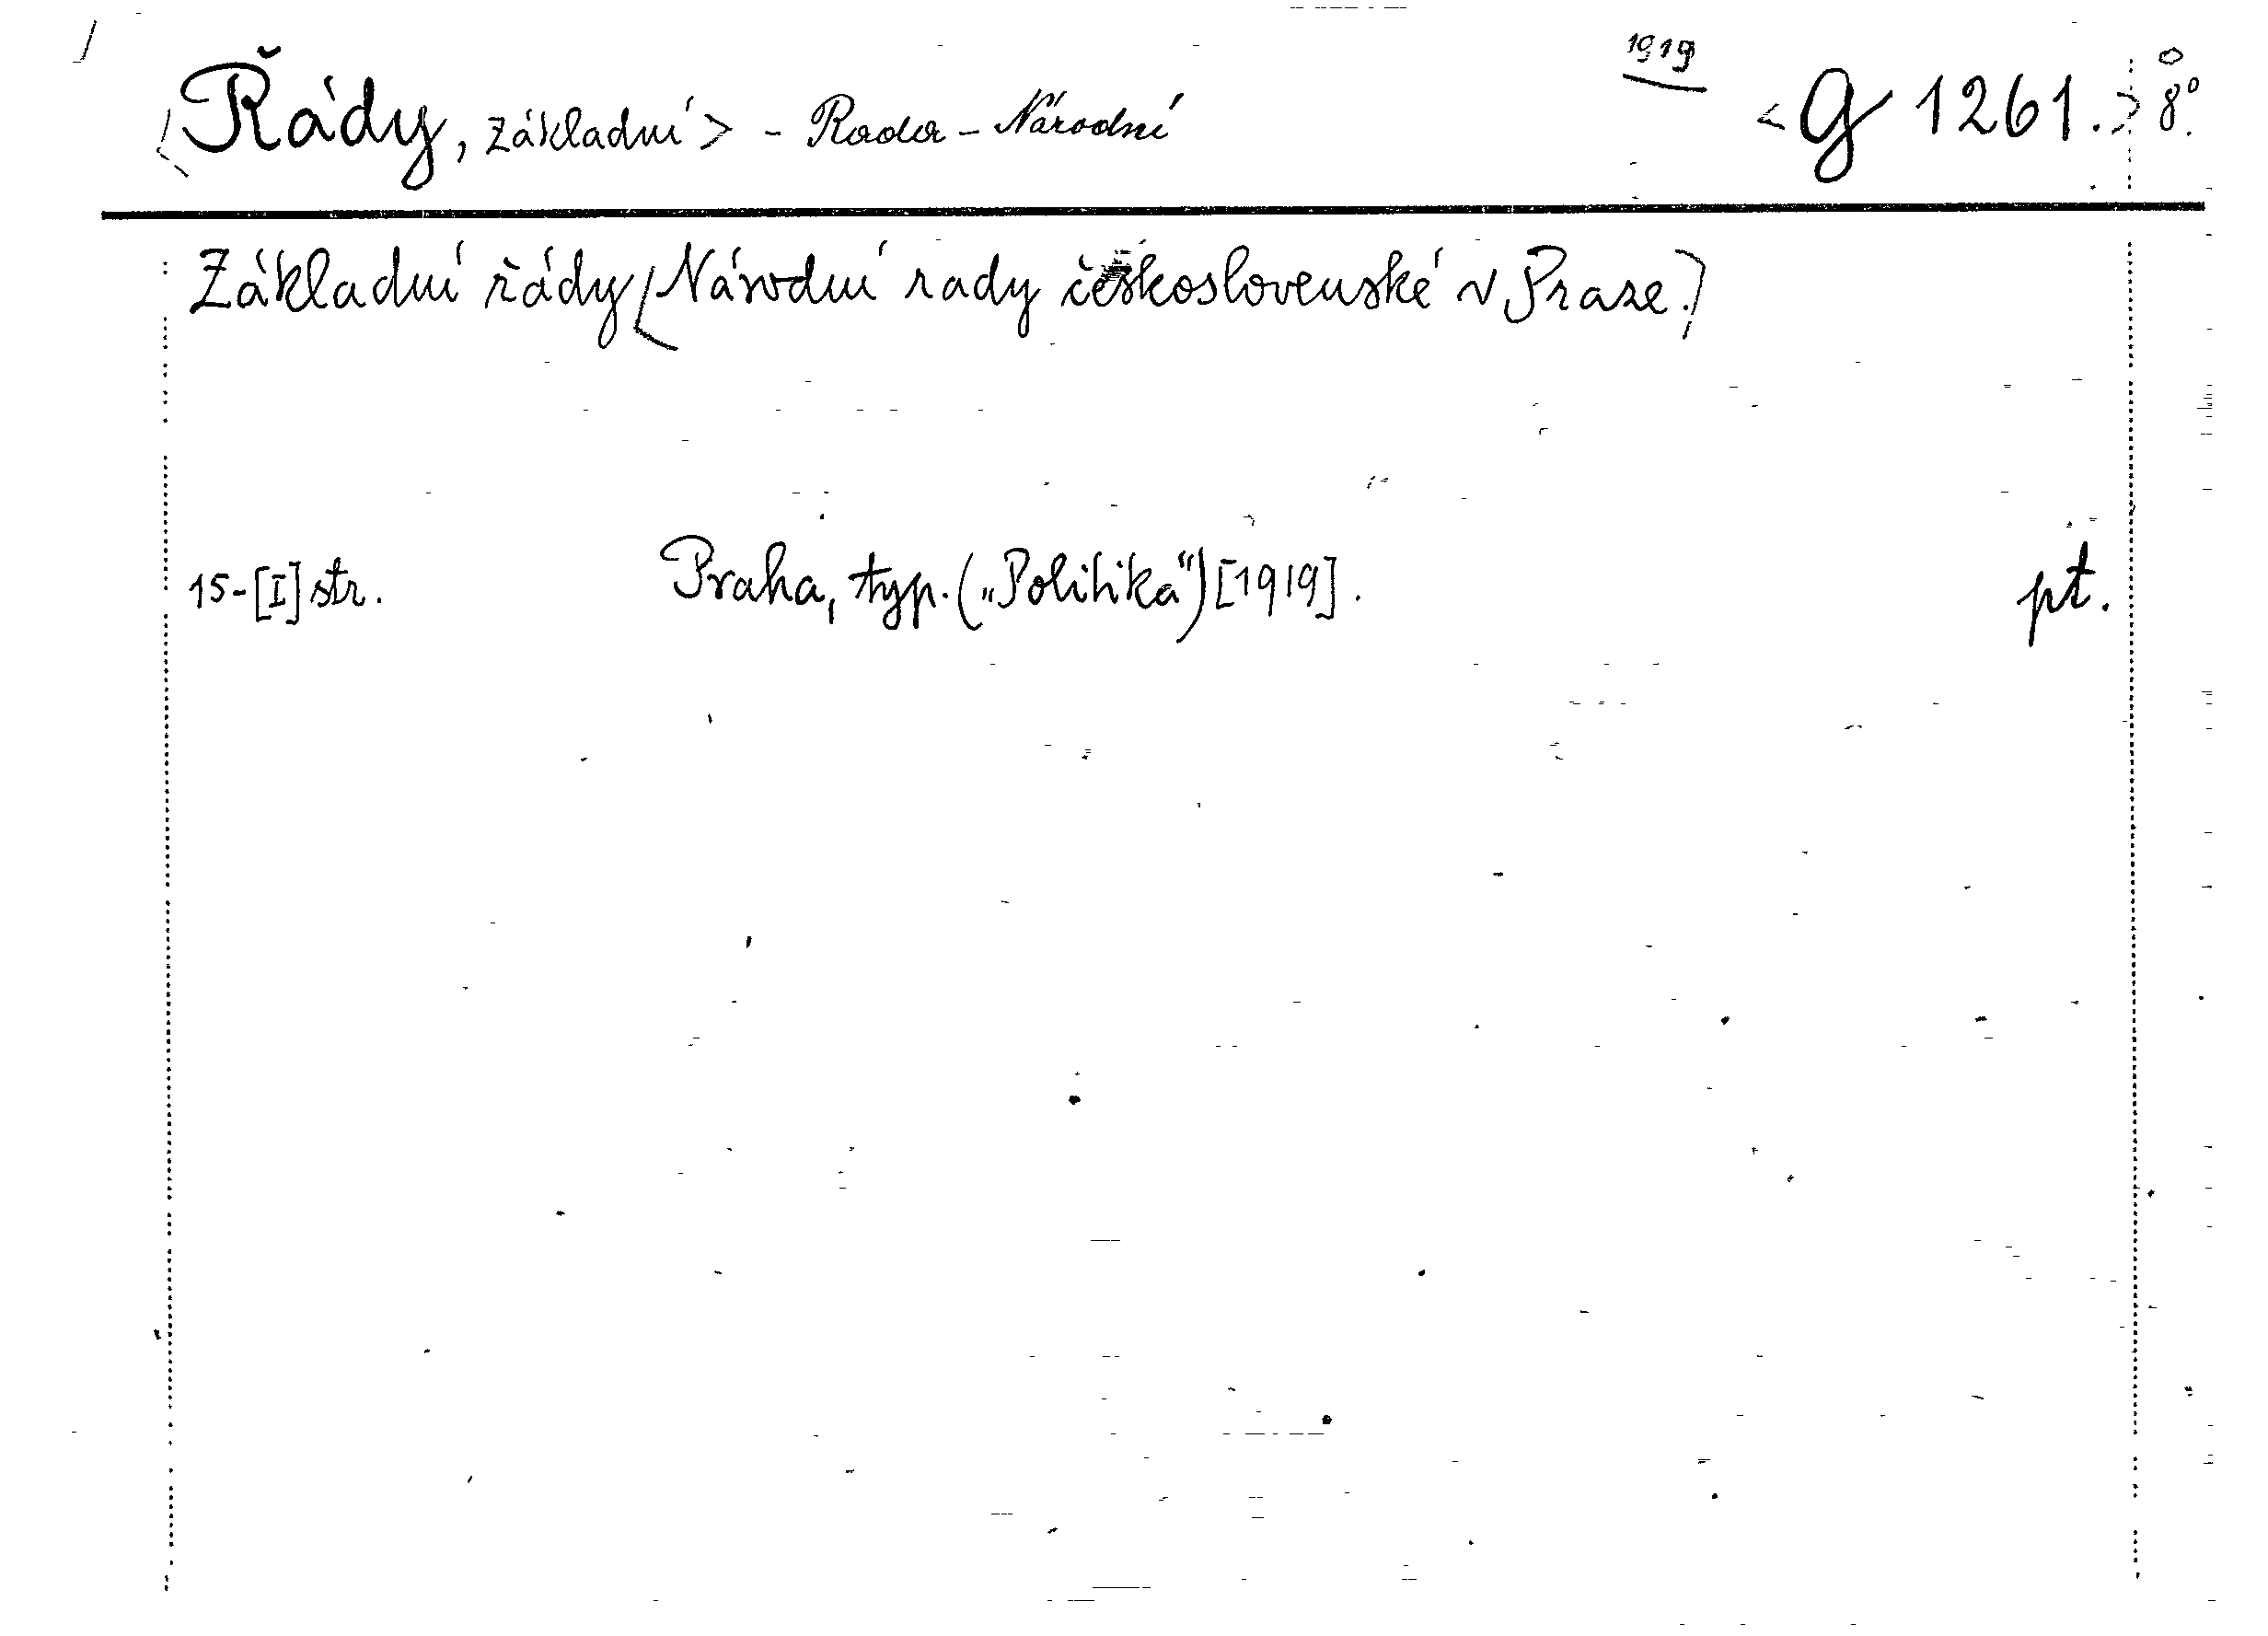 <Řády, základní> - Rada - Národní 1919 <G 1261.> 8°.
Základní řády [Národní rady československé v Praze.]
15-[I] str. Praha, typ. („Politika“) [1919]. pt.